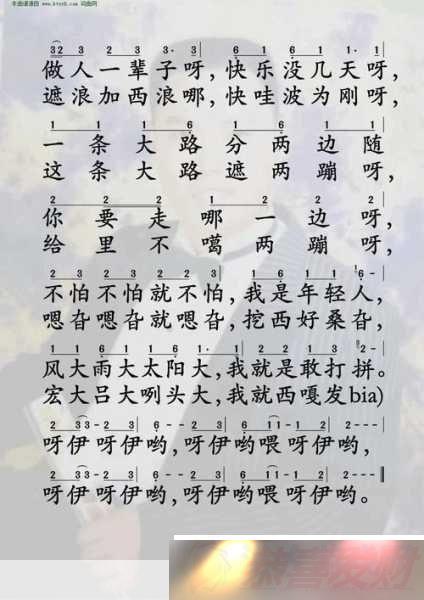 本曲谱源自 词曲网
3 2 3 2 3 3· 3 6 1 6 1 1· 1
做人一辈子呀，快乐没几天呀，
遮浪加西浪哪，快哇波为刚呀，
1 1 1 6 1 6 1 1
一条大路分两边随
这条大路遮两蹦呀，
2 2 2 1 2 2 2
你要走哪一边呀，
给里不噶两蹦呀，
2 3 2 3 2 2 3 1 6 1 1 6 -
不怕不怕就不怕，我是年轻人，
嗯旮嗯旮就嗯旮，挖西好桑旮，
1 1 6 1 1 6 1 1 2 2 1 3 2 -
风大雨大太阳大，我就是敢打拼。
宏大吕大咧头大，我就西嘎发bia)
2 3 3 - 2 3 6 · - 2 3 6 1 1 - 1 2 2 - - -
呀伊呀伊哟，呀伊哟喂呀伊哟，
2 3 3 - 2 3 6 · - 2 3 6 1 1 - 1 2 2 - - -
呀伊呀伊哟，呀伊哟喂呀伊哟。
恭喜发财